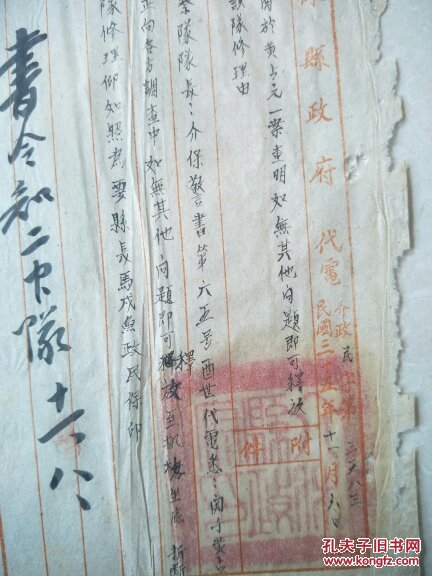 縣政府代電
民國三十五年十一月六日
附件
因於黄占元一案查明如無其他问題即可釋放
隊修理由
隊隊長:介保警書第六五号酉世代電悉:関于黄占
正向各方調查中如無其他问題即可釋放至机槍坐底折断
隊修理仰知照為要縣長馬戌魚政民保印
書令知二中隊十一八
孔夫子旧书网
www.kongfz.com